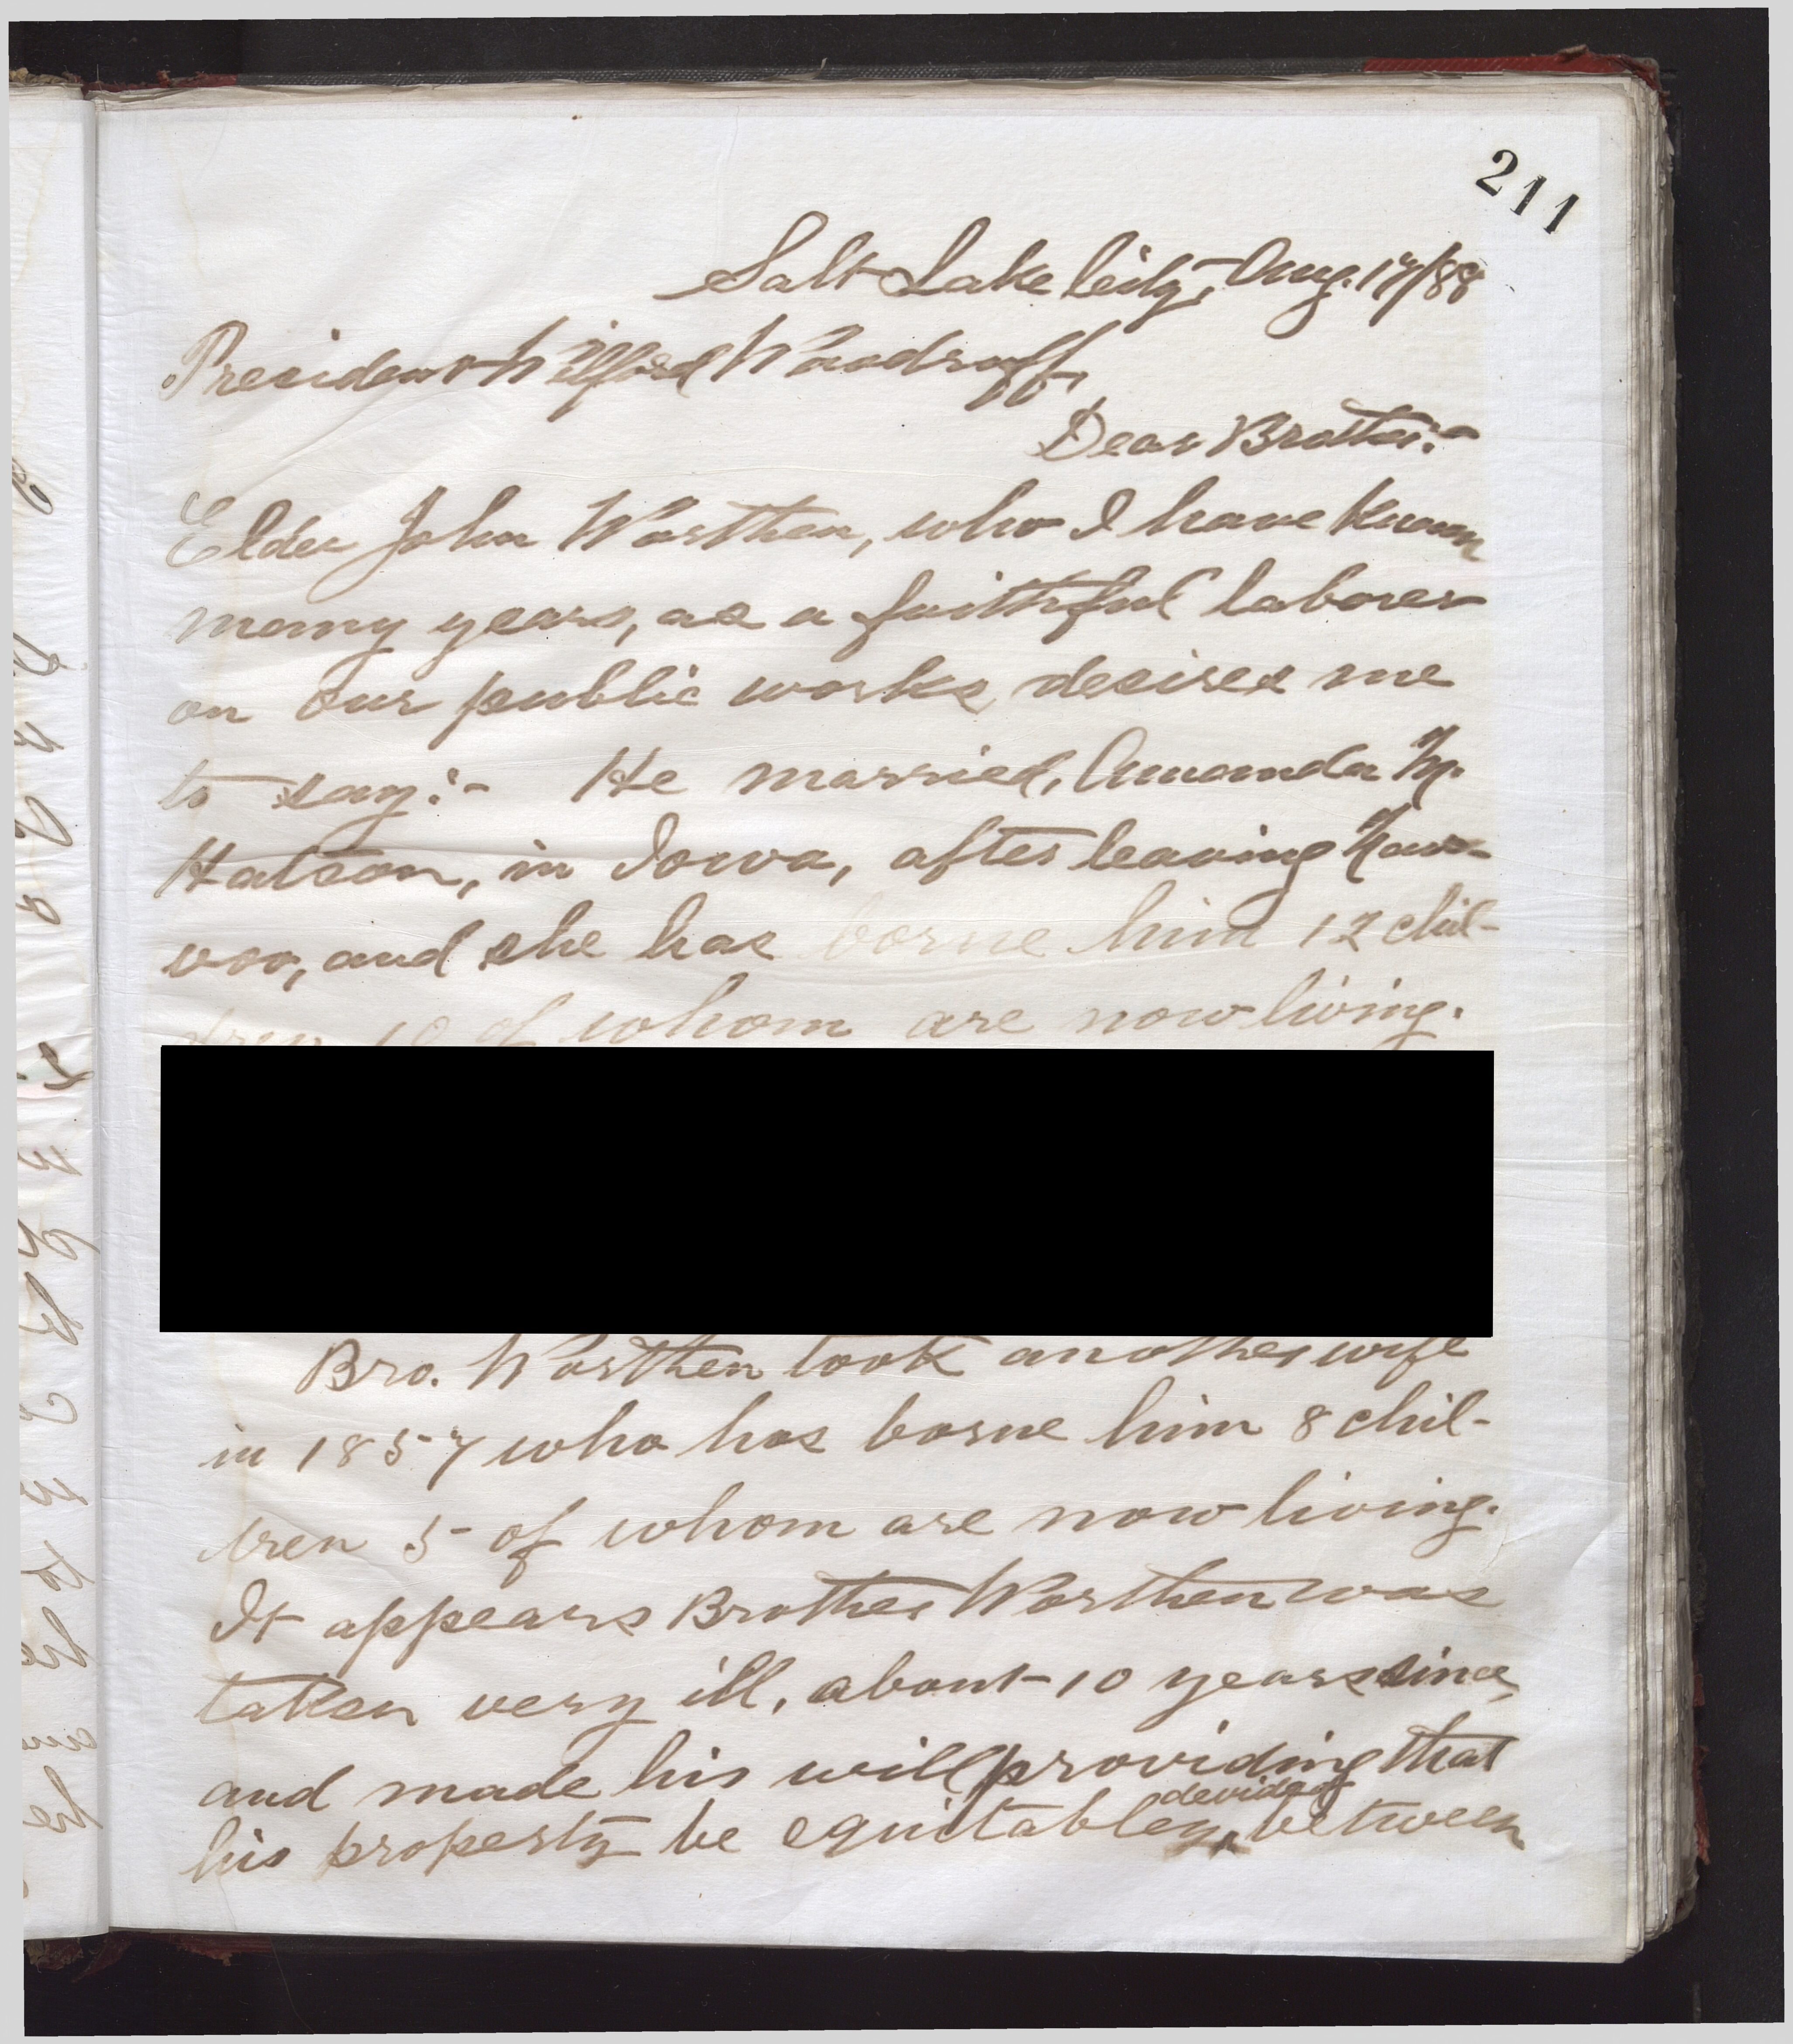 211
Salt Lake City, Aug. 17/88
President Wilford Woodruff,
Dear Brother:-
Elder John Worthen, who I have known
many years, as a faithful laborer
on our public works, desires me
to say:- He married, Amanda M.
Hatson, in Iowa, after leaving Nau-
voo, and she has borne him 12 chil-
dren 10 of whom are now living.
Bro. Worthen took another wife
in 1857 who has borne him 8 chil-
dren 5 of whom are now living.
It appears Brother Worthen was
taken very ill, about 10 years since,
and made his will providing that
devided
his property be equitabley between